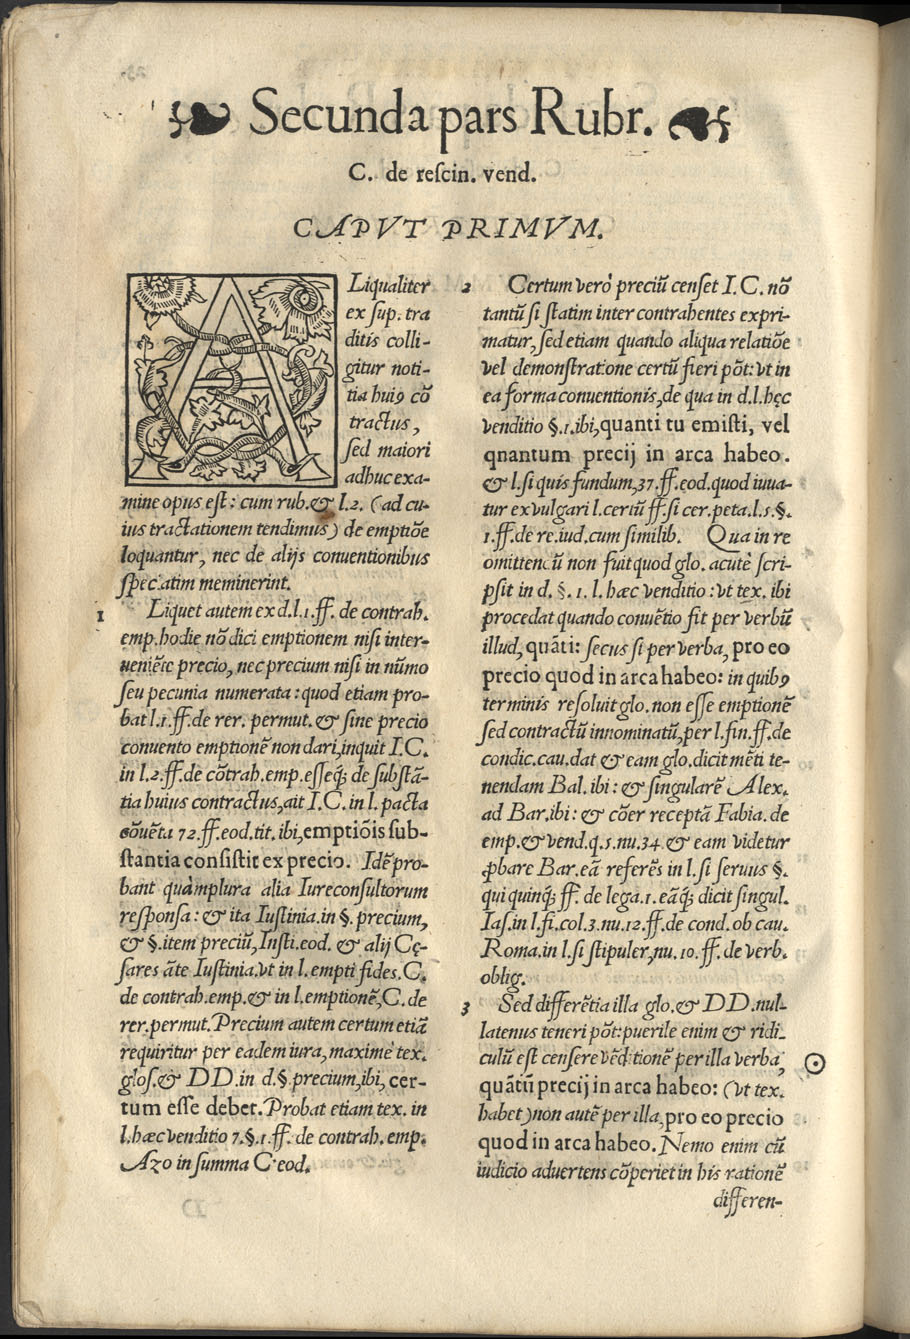 Secunda pars Rubr.
C. de reſcin. vend.
CAPVT PRIMVM.
ALiqualiter
ex ſup. tra
ditis colli-
gitur noti-
tia huiꝰ cõ
tractus,
ſed maiori
adhuc exa-
mine opus eſt: cum rub. & l.2. (ad cu-
ius tractationem tendimus) de emptiõe
loquantur, nec de alijs conuentionibus
ſpeciatim meminerint.
1 Liquet autem ex d.l.1.ff. de contrah.
emp. hodie nõ dici emptionem niſi inter-
ueniẽte precio, nec precium niſi in nũmo
ſeu pecunia numerata: quod etiam pro-
bat l.1.ff. de rer. permut. & ſine precio
conuento emptionẽ non dari, inquit I.C.
in l.2.ff. de cõtrah. emp. eſſeq́; de ſubſtã-
tia huius contractus, ait I.C. in l. pacta
cõuẽta 72.ff. eod. tit. ibi, emptiõis ſub-
ſtantia conſiſtit ex precio. Idẽ pro-
bant quàmplura alia Iureconſultorum
reſponſa: & ita Iuſtinia. in §. precium,
& §. item preciũ, Inſti. eod. & alij Cę-
ſares ãte Iuſtinia. vt in l. empti fides. C.
de contrah. emp. & in l. emptionẽ, C. de
rer. permut. Precium autem certum etiã
requiritur per eadem iura, maximè tex.
gloſ. & DD. in d. §. precium, ibi, cer-
tum eſſe debet. Probat etiam tex. in
l. hæc venditio 7. §.1.ff. de contrah. emp.
Azo in ſumma C. eod.
2 Certum verò preciũ cenſet I.C. nõ
tantũ ſi ſtatim inter contrahentes expri-
matur, ſed etiam quando aliqua relatiõe
vel demonſtratione certũ fieri põt: vt in
ea forma conuentionis, de qua in d.l. hęc
venditio §.1. ibi, quanti tu emiſti, vel
qnantum precij in arca habeo.
& l. ſi quis fundum, 37.ff. eod. quod iuua-
tur ex vulgari l. certũ ff. ſi cer. peta. l.5. §.
1.ff. de re. iud. cum ſimilib. Qua in re
omittendũ non fuit quod glo. acutè ſcri-
pſit in d. §. 1. l. hæc venditio: vt tex. ibi
procedat quando conuẽtio fit per verbũ
illud, quãti: ſecus ſi per verba, pro eo
precio quod in arca habeo: in quibꝰ
terminis reſoluit glo. non eſſe emptionẽ
ſed contractũ innominatũ, per l. fin.ff. de
condic. cau. dat & eam glo. dicit mẽti te-
nendam Bal. ibi: & ſingularẽ Alex.
ad Bar. ibi: & cõer receptã Fabia. de
emp. & vend. q.5. nu.34. & eam videtur
ꝓbare Bar. eã referẽs in l. ſi ſeruus §.
qui quinq́; ff. de lega.1. eãq́; dicit ſingul.
Iaſ. in l. fi. col.3. nu.12.ff. de cond. ob cau.
Roma. in l. ſi ſtipuler, nu. 10.ff. de verb.
oblig.
3 Sed differẽtia illa glo. & DD. nul-
latenus teneri põt: puerile enim & ridi-
culũ eſt cenſere vẽditionẽ per illa verba,
quãtũ precij in arca habeo: (vt tex.
habet) non autẽ per illa, pro eo precio
quod in arca habeo. Nemo enim cũ
iudicio aduertens cõperiet in his rationẽ
differen-